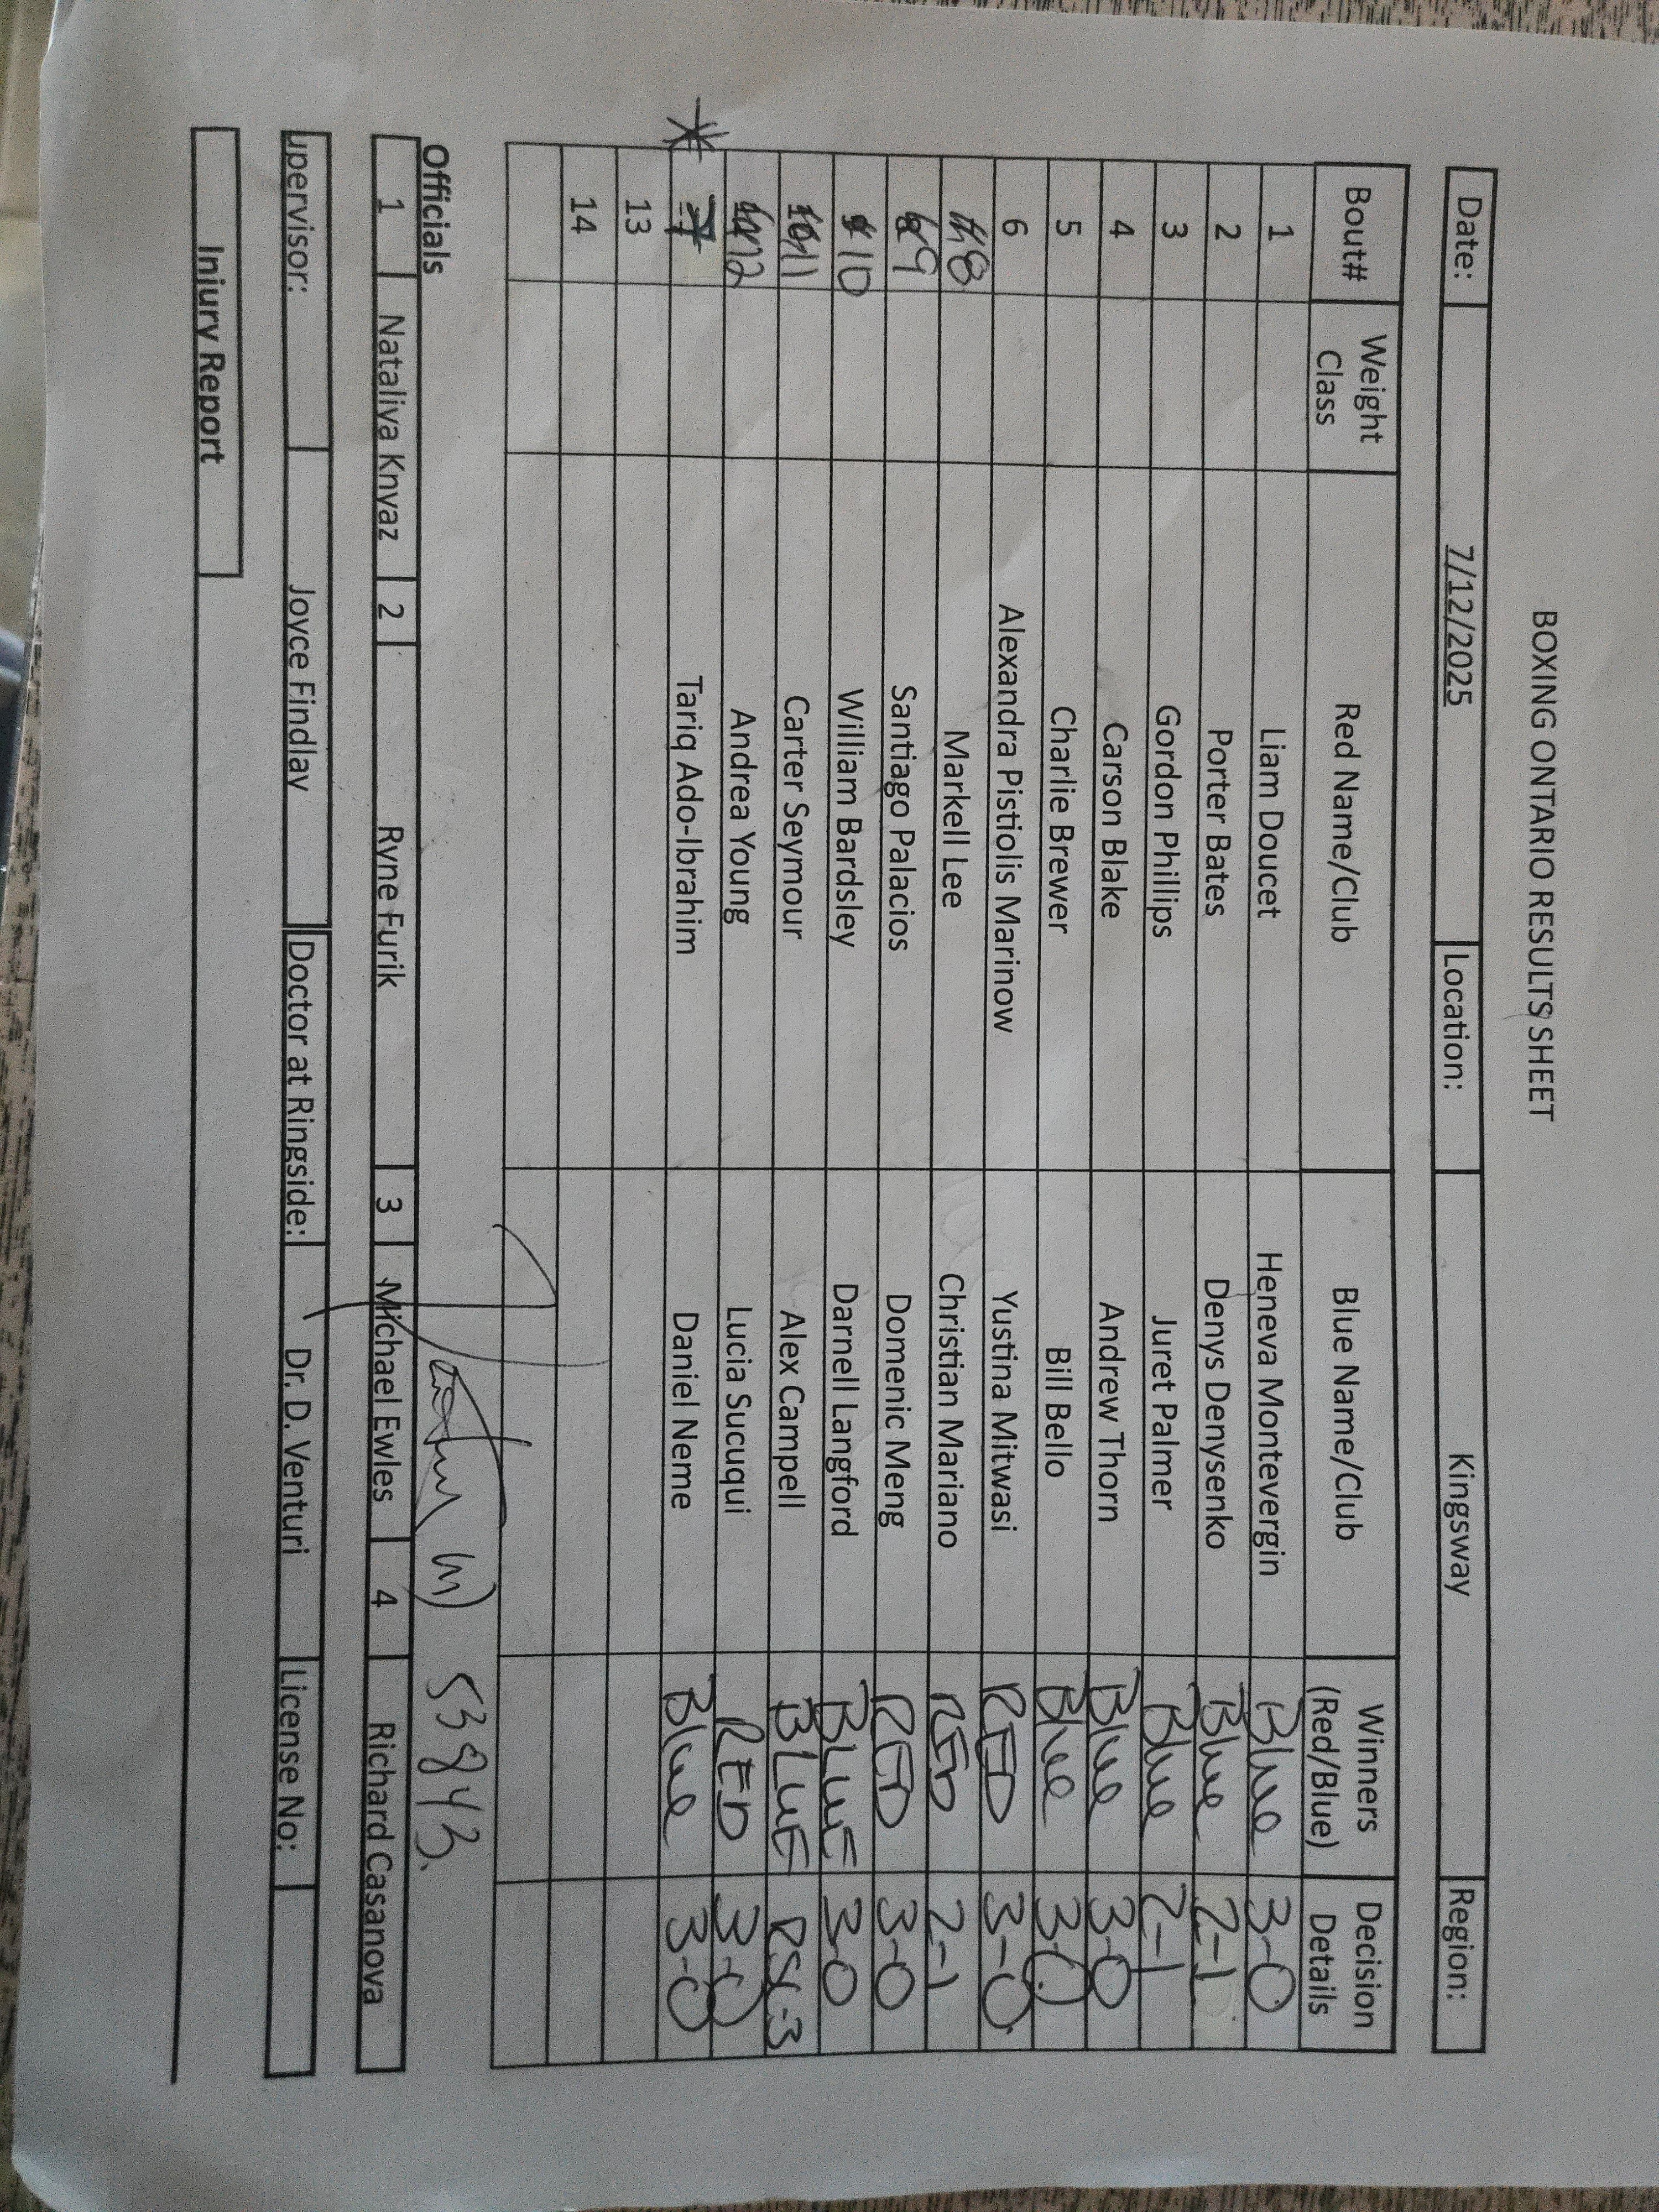 BOXING ONTARIO RESULTS SHEET
Date: 7/12/2025 Location: Kingsway Region:
Bout# Weight Class Red Name/Club Blue Name/Club Winners (Red/Blue) Decision Details
1 Liam Doucet Heneva Montevergin Blue 3-0
2 Porter Bates Denys Denysenko Blue 2-1
3 Gordon Phillips Juret Palmer Blue 2-1
4 Carson Blake Andrew Thorn Blue 3-0
5 Charlie Brewer Bill Bello Blue 3-0
6 Alexandra Pistiolis Marinow Yustina Mitwasi RED 3-0
8 Markell Lee Christian Mariano RED 2-1
9 Santiago Palacios Domenic Meng RED 3-0
10 William Bardsley Darnell Langford BLUE 3-0
11 Carter Seymour Alex Campell BLUE RSC-3
12 Andrea Young Lucia Sucuqui RED 3-0
* 7 Tariq Ado-Ibrahim Daniel Neme Blue 3-0
13
14
53843.
Officials
1 Nataliya Knyaz 2 Ryne Furik 3 Michael Ewles 4 Richard Casanova
upervisor: Joyce Findlay Doctor at Ringside: Dr. D. Venturi License No:
Injury Report